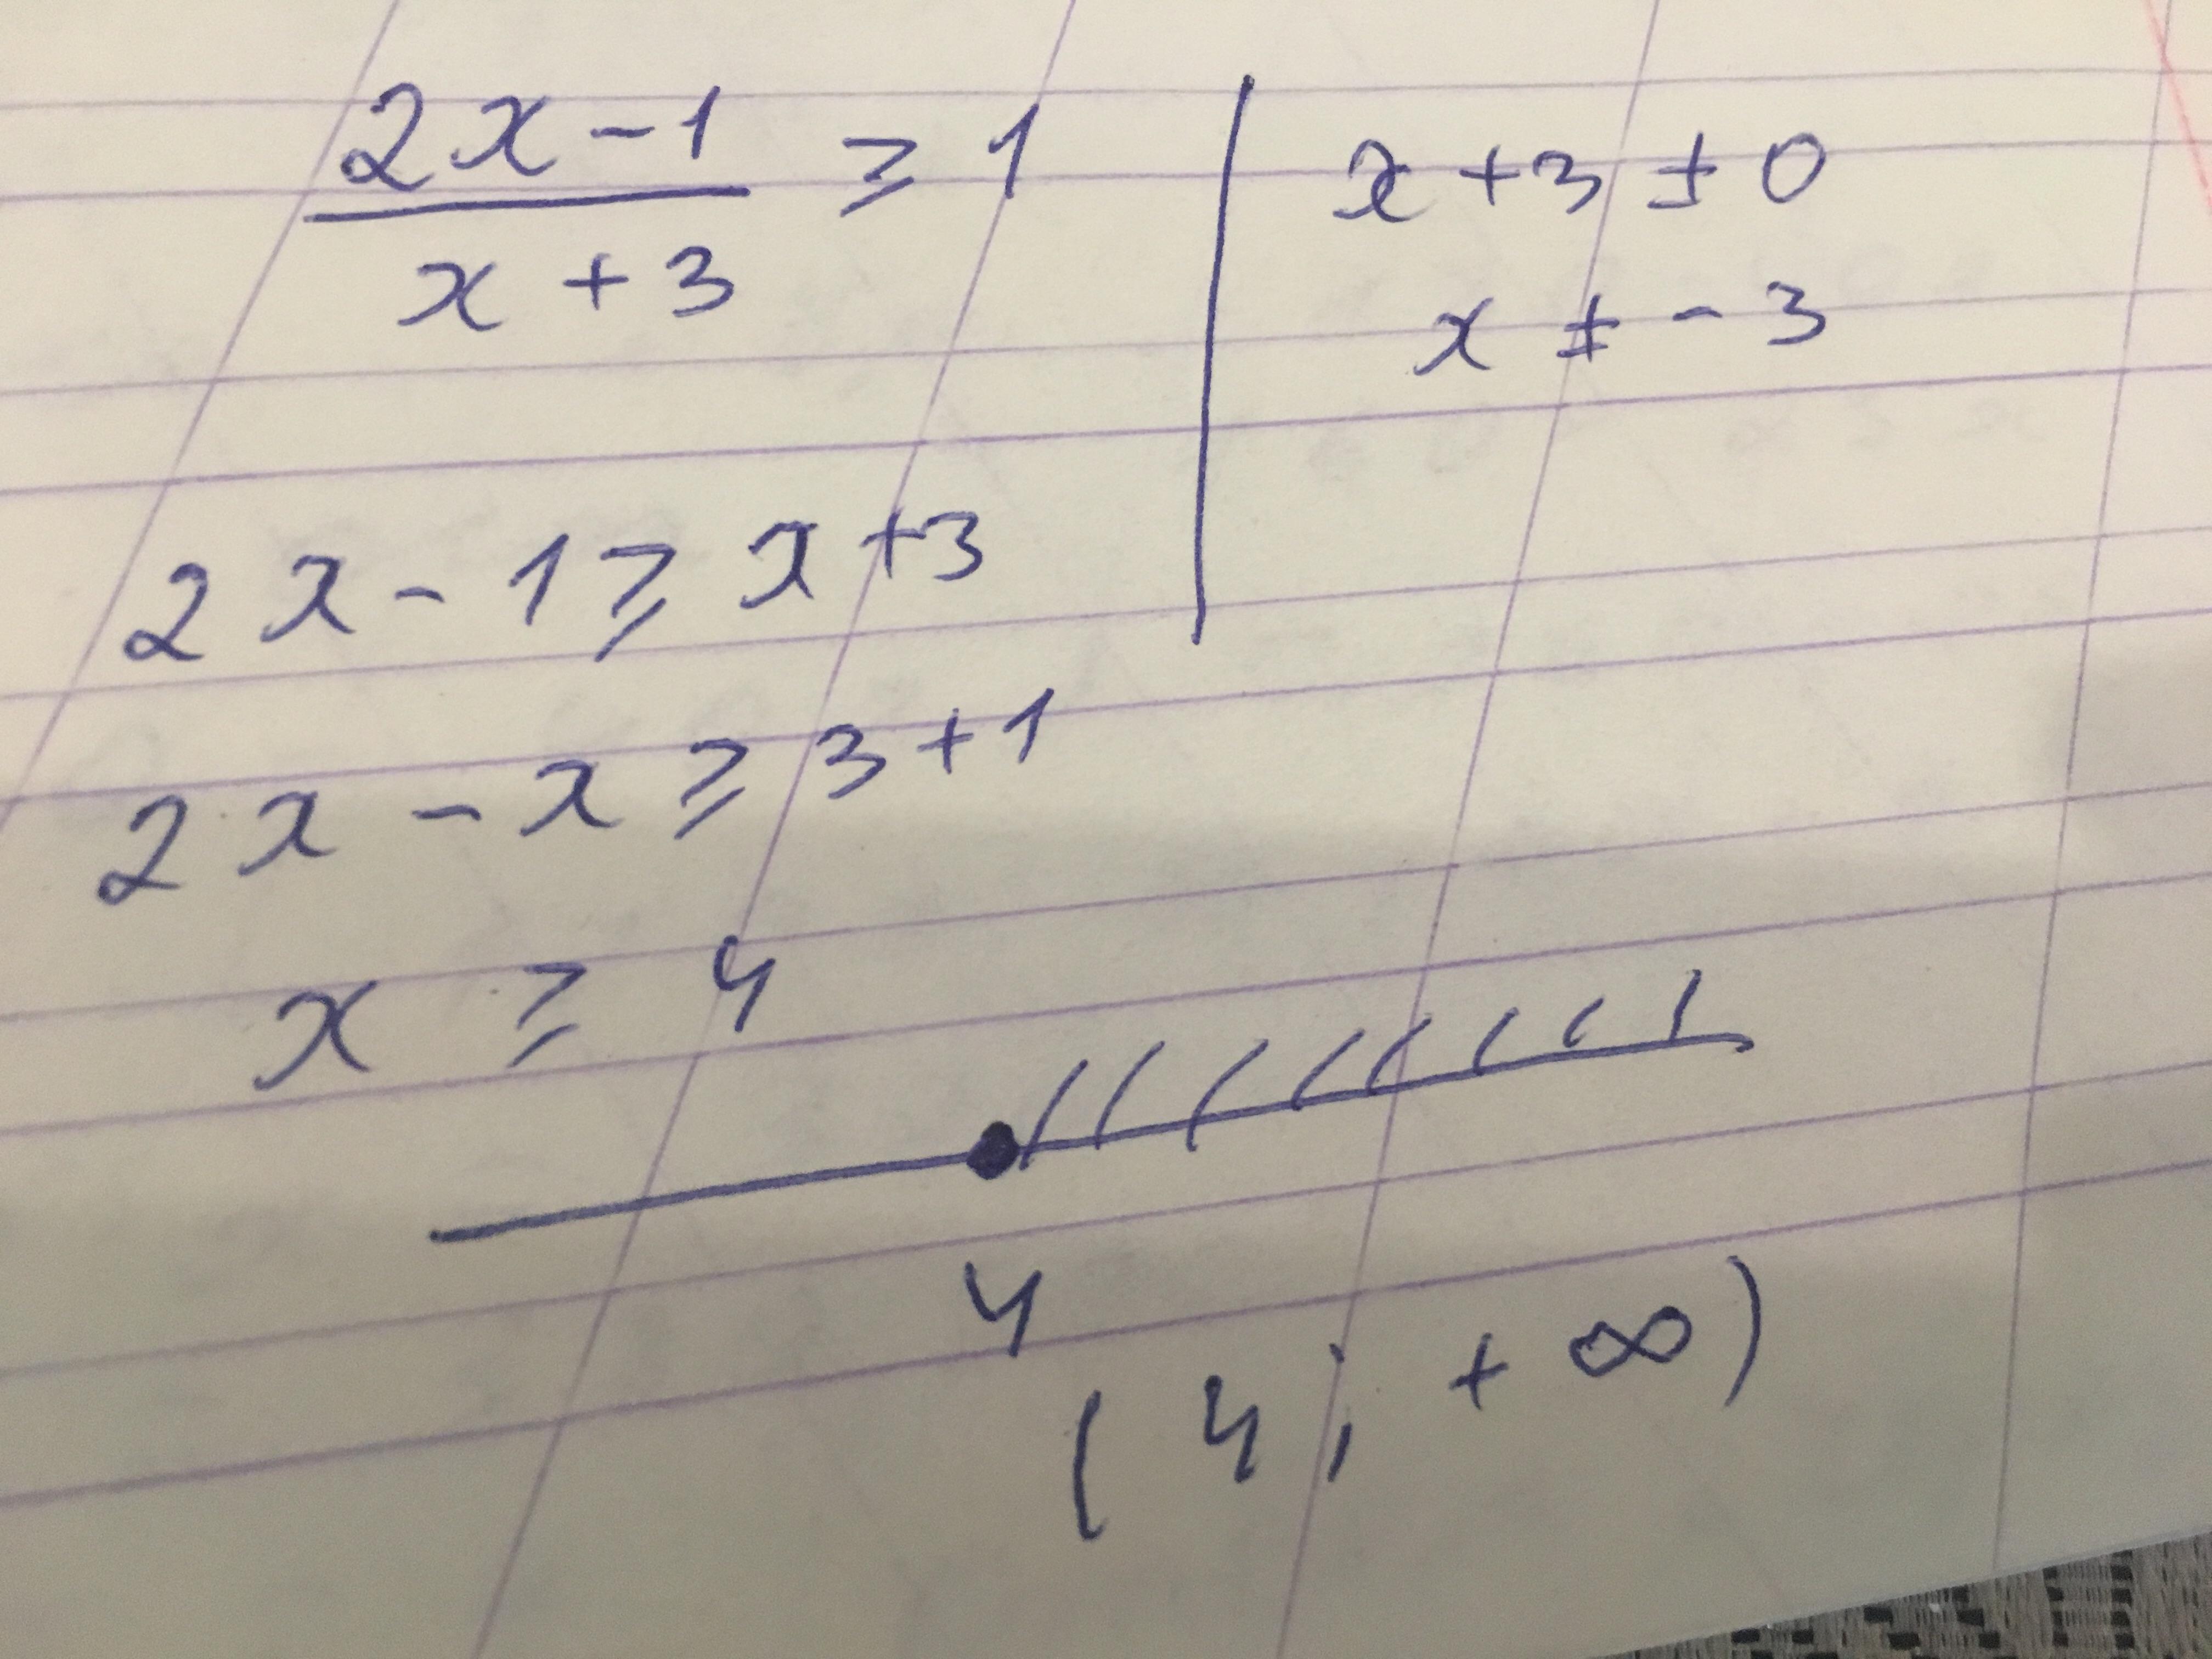 2x-1/x+3 ≥ 1
x+3 ≠ 0
x ≠ -3
2x-1 ≥ x+3
2x-x ≥ 3+1
x ≥ 4
4
(4; +∞)